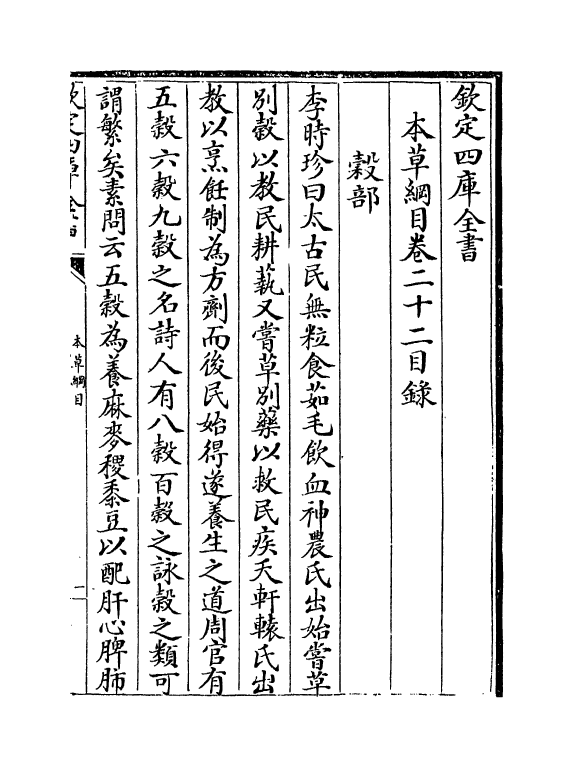 欽定四庫全書
本草綱目卷二十二目錄
穀部
李時珍曰太古民無粒食茹毛飲血神農氏出始嘗草
別穀以教民耕蓺又嘗草別藥以救民疾夭軒轅氏出
教以烹飪制為方劑而後民始得遂養生之道周官有
五穀六穀九穀之名詩人有八穀百穀之詠穀之類可
謂繁矣素問云五穀為養麻麥稷黍豆以配肝心脾肺
本草綱目